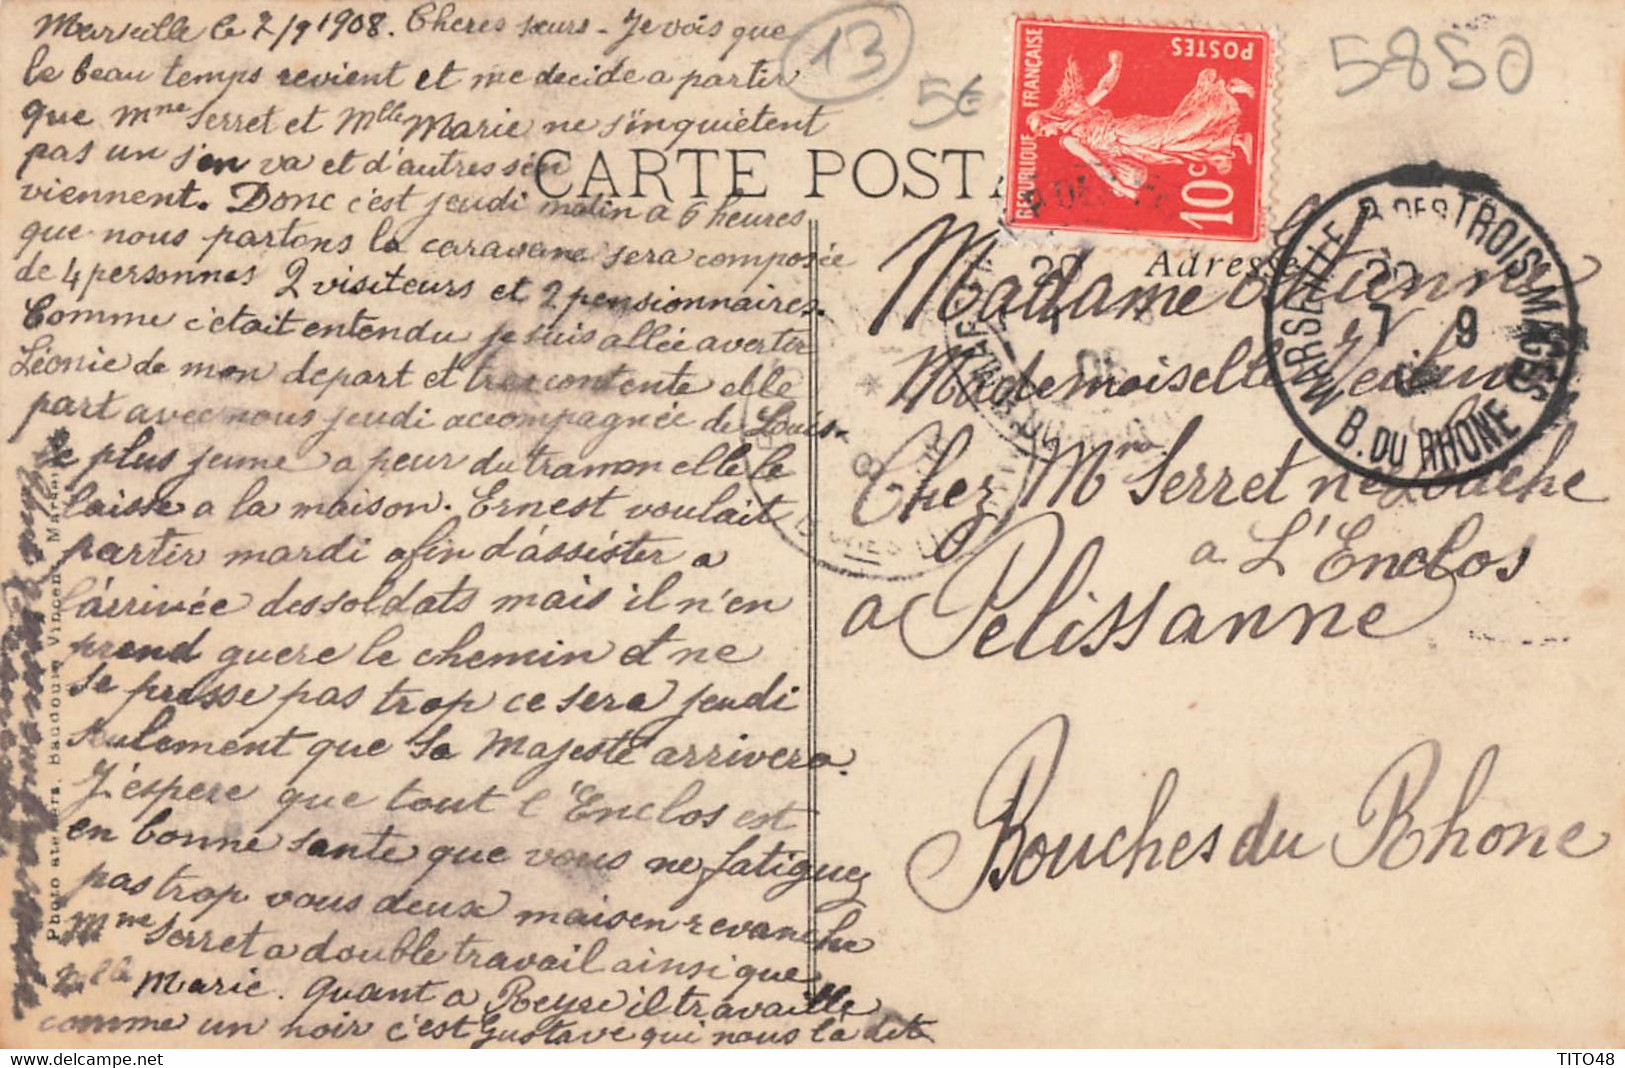 Marseille le 7/9 1908. Cheres sœurs - Je vois que
le beau temps revient et me decide a partir
que Mme Serret et Mlle Marie ne s'inquiètent
pas un s'en va et d'autres s'en
viennent. Donc c'est jeudi matin a 6 heures
que nous partons la caravane sera composée
de 4 personnes 2 visiteurs et 2 pensionnaires.
Comme c'était entendu je suis allée avertir
Léonie de mon depart et tres contente elle
part avec nous jeudi accompagnée de Louis.
le plus jeune a peur du tramon elle le
laisse a la maison. Ernest voulait
partir mardi afin d'assister a
l'arrivée des soldats mais il n'en
prend guere le chemin et ne
se presse pas trop ce sera jeudi
seulement que Sa Majesté arrivera.
J'éspere que tout l'Enclos est
en bonne sante que vous ne fatiguez
pas trop vous deux mais en revanche
Mme Serret a double travail ainsi que
Mlle Marie. Quant a Reyre il travaille
comme un noir c'est Gustave qui nous l'a dit
Photo ateliers. Baudouin Vincent, Mars
13
5€
5850
CARTE POSTA
Adresse
POSTES
REPUBLIQUE FRANÇAISE
10c
MARSEILLE P. DES TROIS MAGES
7 9
B. DU RHONE
Madame Etienne
Mademoiselle
Chez Mr Serret
a L'Enclos
a Pelissanne
Bouches du Rhone
TITO48